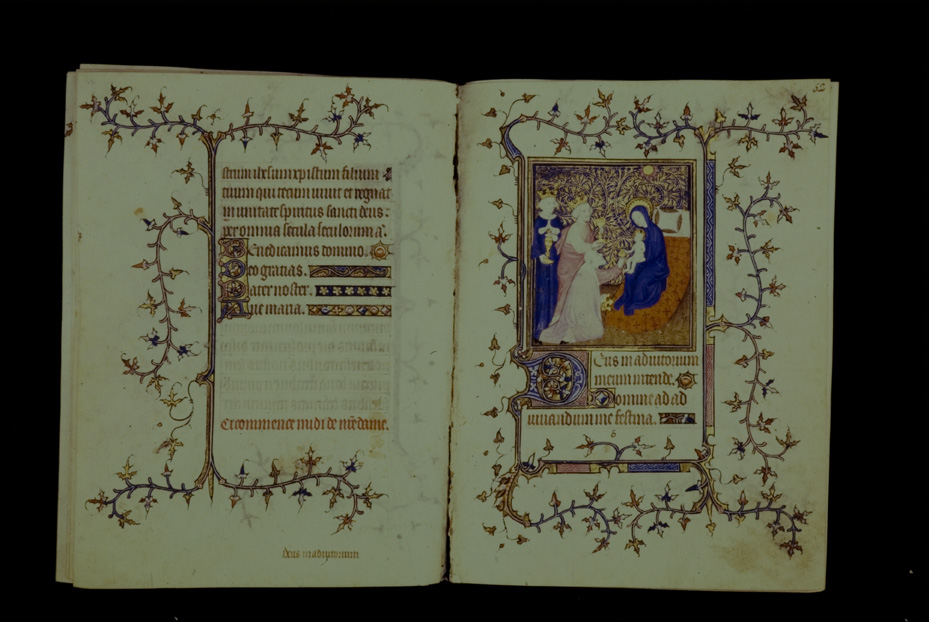 strum ihesum xpistum filium
tuum qui tecum uiuit et regnat
in unitate spiritus sancti deus.
per omnia secula seculorum a.
Benedicamus domino.
Deo gracias.
Pater noster.
Aue maria.
Ci commence midi de nre dame.
Deus in adiutorium
52
Deus in adiutorium
meum intende.
Domine ad ad
iuuandum me festina.